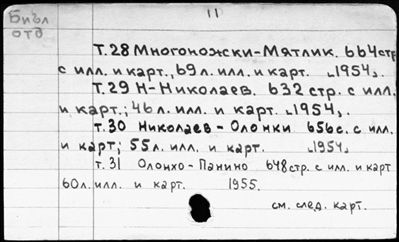 11
Библ
отд
Т.28 Многоножски-Мятлик. 664стр
с илл. и карт., 69 л. илл. и карт. 1954.
Т.29 Н-Николаев. 632 стр. с илл.
и карт.; 46 л. илл. и карт. 1954.
т.30 Николаев - Олонки 656с. с илл.
и карт; 55 л. илл. и карт. 1954
т. 31 Олонхо-Панино 648стр. с илл. и карт
60 л. илл. и карт. 1955.
см. след. карт.